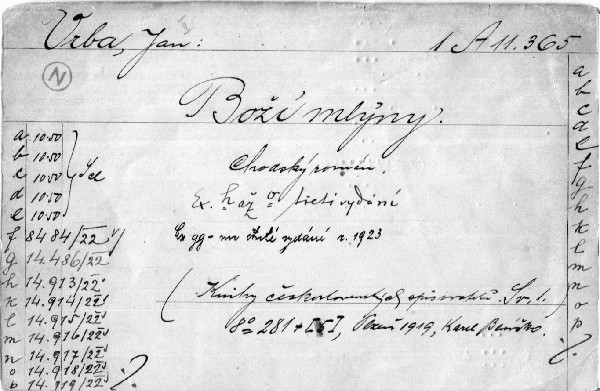 Vrba, Jan:
1 A 11.365
N
Boží mlýny.
Chodský román.
Ex. h až o třetí vydání
Ex gg - nn vydání r. 1923
(Knihy československých spisovatelů. Sv. 1.)
8° 281 + , 1919, Karel
a 10·50
b 10·50
c 10·50
d 10·50
e 10·50
f 8484/22
g 14.486/22
h 14.913/22
k 14.914/22
l 14.915/22
m 14.916/22
n 14.917/22
o 14.918/22
p 14.119/22
a
b
c
d
e
f
g
h
k
l
m
n
o
p